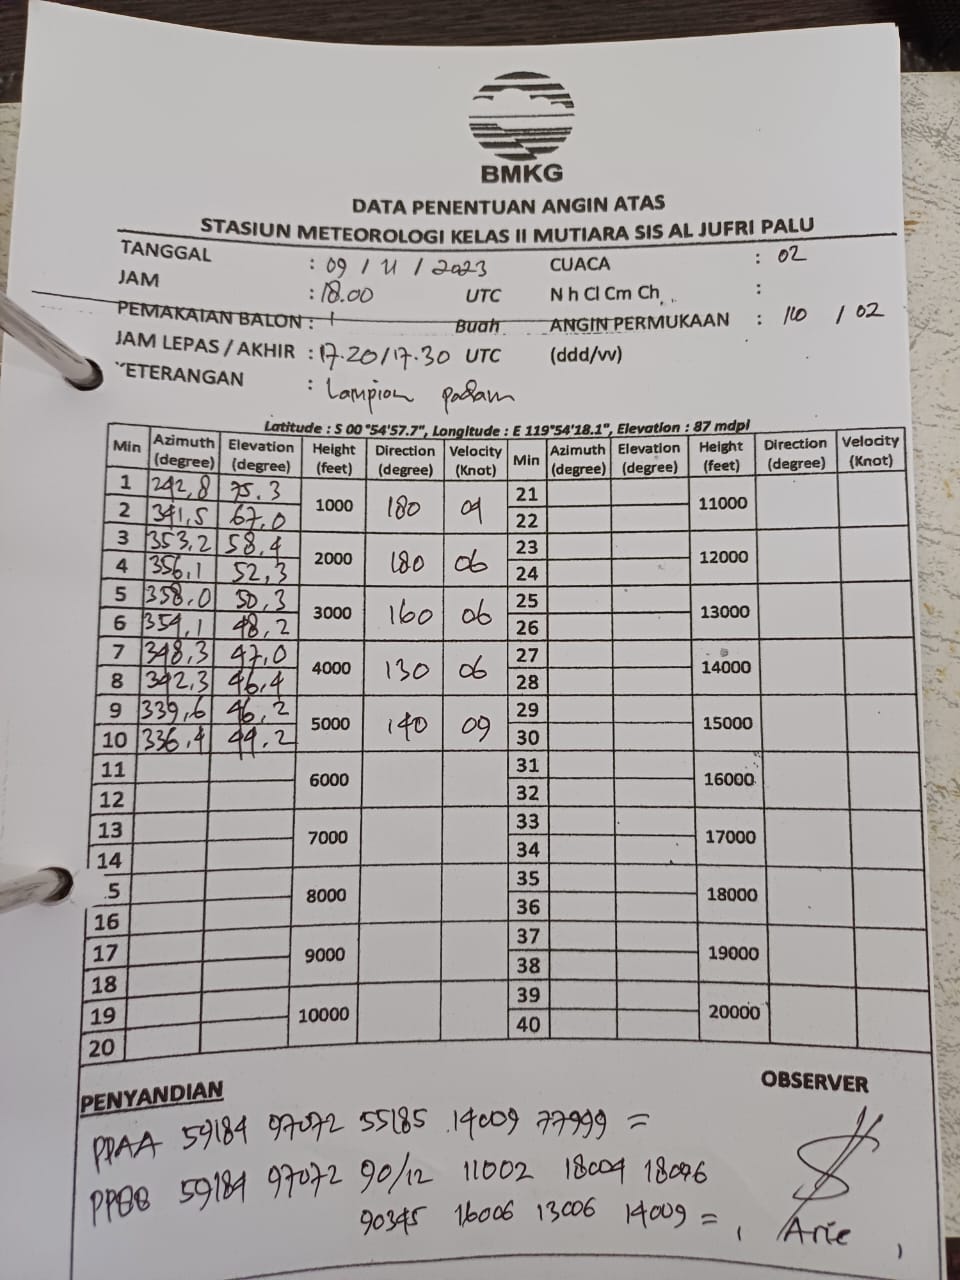 BMKG
DATA PENENTUAN ANGIN ATAS
STASIUN METEOROLOGI KELAS II MUTIARA SIS AL JUFRI PALU
TANGGAL : 09 / 11 / 2023 CUACA : 02
JAM : 18.00 UTC N h Cl Cm Ch :
PEMAKAIAN BALON : 1 Buah ANGIN PERMUKAAN : 110 / 02
JAM LEPAS / AKHIR : 17.20/17.30 UTC (ddd/vv)
KETERANGAN : Lampion padam
Latitude : S 00°54'57.7", Longitude : E 119°54'18.1", Elevation : 87 mdpl
Min Azimuth (degree) Elevation (degree) Height (feet) Direction (degree) Velocity (Knot) Min Azimuth (degree) Elevation (degree) Height (feet) Direction (degree) Velocity (Knot)
1 242,8 75.3 1000 180 04 21 11000
2 341,5 67,0 22
3 353,2 58,4 2000 180 06 23 12000
4 356,1 52,3 24
5 358,0 50,3 3000 160 06 25 13000
6 354,1 48,2 26
7 348,3 47,0 4000 130 06 27 14000
8 342,3 46,4 28
9 339,6 46,2 5000 140 09 29 15000
10 336,4 44,2 30
11 6000 31 16000
12 32
13 7000 33 17000
14 34
5 8000 35 18000
16 36
17 9000 37 19000
18 38
19 10000 39 20000
20 40
PENYANDIAN OBSERVER
PPAA 59184 97072 55185 14009 77999 =
PPBB 59184 97072 90/12 11002 18004 18006
90345 16006 13006 14009 =
Arie